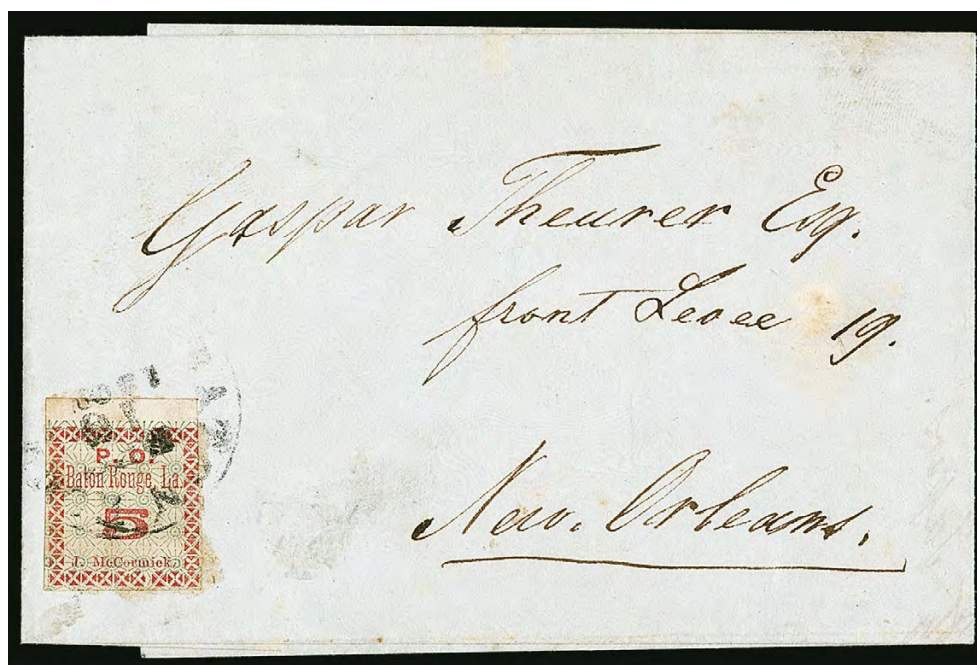 Gaspar Theurer Esq.
front Levee 19.
New. Orleans.
P. O.
Baton Rouge, La.
5
J. McCormick